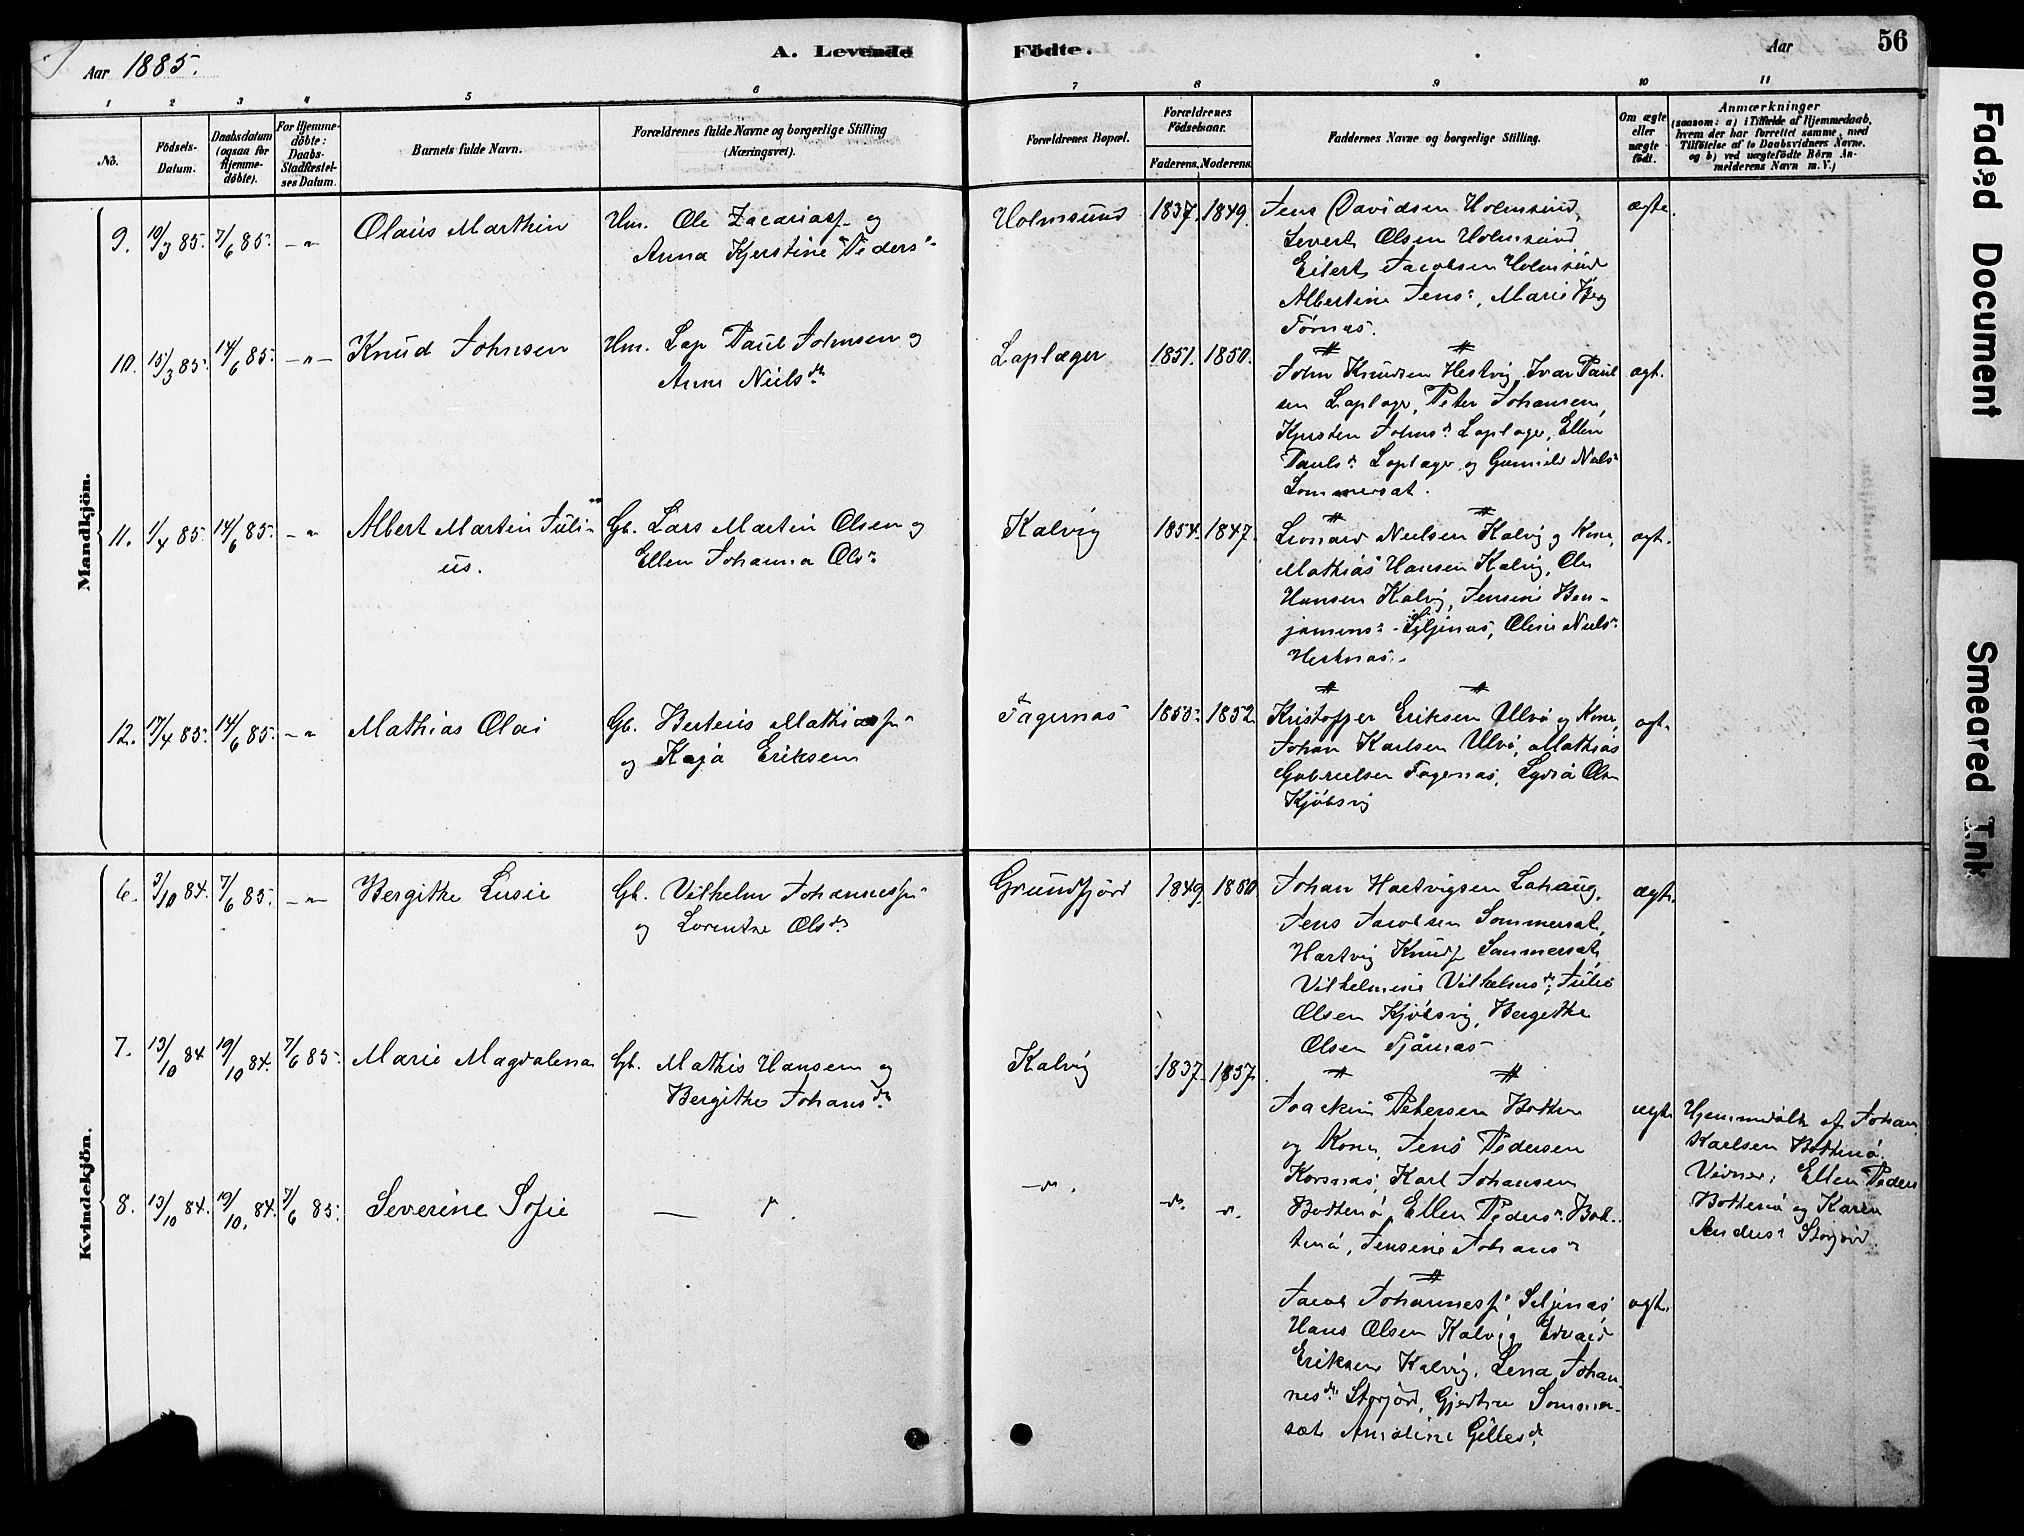 Aar 1885.
A. Levende Födte.
Aar
56
1 2 3 4 5 6 7 8 9 10 11
No.
Födsels-Datum.
Daabsdatum (ogsaa for Hjemme-döbte).
For Hjemme-döbte: Daabs-Stadfæstel-ses Datum.
Barnets fulde Navn.
Forældrenes fulde Navne og borgerlige Stilling (Næringsvei).
Forældrenes Bopæl.
Forældrenes Födselsaar.
Faderens. Moderens.
Faddernes Navne og borgerlige Stilling.
Om ægte eller uægte födt.
Anmærkninger
(saasom: a) i Tilfælde af Hjemmedaab, hvem der har forrettet samme, med Tilföielse af to Daabsvidners Navne. og b) ved uægtefödte Börn An-melderens Navn m. V.)
Mandkjön.
9. 19/3 85. 7/6 85. -"- Olaus Marthin
Hm. Ole Zacariass. og
Anna Kjerstine Peders
Holmsund 1837. 1849.
Jens Davidsen Holmsund,
Severt Olsen Holmsund
Eilert Jacobsen Holmsund
Albertine Jens, Marie Berg
Tørnæs.
ægte.
10. 15/3 85. 14/6 85. -"- Knud Johnsen
Hm. Lap Paul Johnsen og
Anne Niels d.
Laplæger 1851. 1850.
John Knudsen Hestvig, Ivar Paul
sen Laplæger, Peter Johansen,
Kjersten Johns Laplæger, Ellen
Pauls Laplæger og Gunnild Niels
Sommersæt.
ægt.
11. 1/4 85. 14/6 85. -"- Albert Martin Juli-
us.
Gb. Lars Martin Olsen og
Ellen Johanna Ols
Kalvig 1854. 1847.
Leonard Neelsen Kalvig og Kone,
Mathias Hansen Kalvig, Ole
Hansen Kalvig, Jensine Ben-
jamins Siljenæs, Oline Niels
Hestnæs.
ægt.
12. 17/4 85. 14/6 85. -"- Mathias Olai
Gb. Berteus Mathiass.
og Kaja Eriksen
Fagernæs 1855. 1852.
Kristoffer Eriksen Ulvø og Kone,
Johan Karlsen Ulvø, Mathias
Gabrielsen Fagernæs, Lydia Olsen
Kjøbsvig
ægt.
Kvindekjön.
6. 3/10 84. 7/6 85. -"- Bergithe Lusie
Gb. Vilhelm Johanness.
og Lorentze Ols d.
Grundfjord 1849. 1850
Johan Hartvigsen Lahaug,
Jens Jacobsen Sommersæt,
Hartvig Knuds. Sommersæt,
Vilhelmine Vilhelms d., Julie
Olsen Kjøbsvig, Bergithe
Olsen Tjärnæs
ægt.
7. 13/10 84 19/10 84. 7/6 85. Marie Magdalena
Gb. Mathis Hansen og
Bergithe Johans d.
Kalvig 1837. 1837.
Joackim Petersen Botten
og Kone, Jens Pedersen
Korsnæs, Karl Johansen
Bottenø, Ellen Peders Bot-
tenø, Jensine Johans
ægt.
Hjemmedøbt af Johan
Karlsen Bottenø.
Vidner: Ellen Peders
Bottenø og Karen
Anders Storjord.
8. 13/10 84. 19/10. 84. 7/6 85. Severine Sofie
— " .
-"-. -"-. -"-.
Jacob Johanness. Siljenæs
Hans Olsen Kalvig, Edvard
Eriksen Kalvig, Lena Johan-
nes d. Storjord, Gjertine Sommer-
sæt, Amoline Gilles d.
ægt.
Faded Document
Smeared Ink